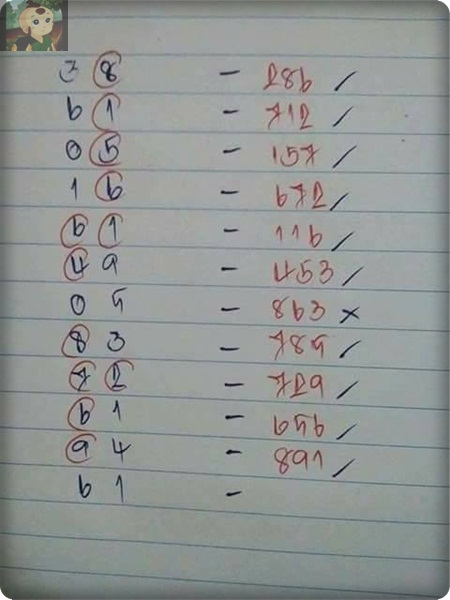 3 8 - 786 /
6 1 - 712 /
0 5 - 157 /
1 6 - 672 /
6 1 - 116 /
4 9 - 453 /
0 5 - 863 ×
8 3 - 785 /
7 2 - 729 /
6 1 - 656 /
9 4 - 891 /
6 1 -